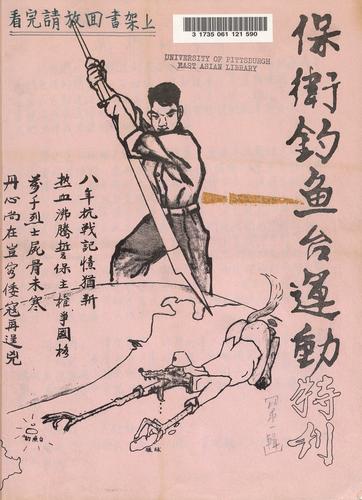 看完請放回書架上
3 1735 061 121 590
UNIVERSITY OF PITTSBURGH
EAST ASIAN LIBRARY
保衛釣鱼台運動特刊
第一輯
八年抗戰記憶猶新
熱血沸騰誓保主權爭國格
萬千烈士屍骨未寒
丹心尚在豈容倭寇再逞兇
釣魚台
琉球